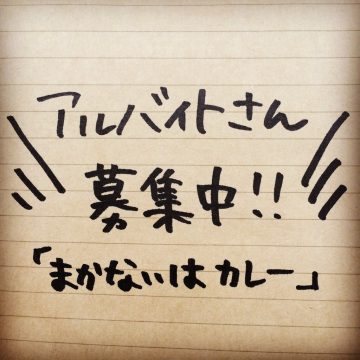 アルバイトさん
募集中!!
「まかないはカレー」